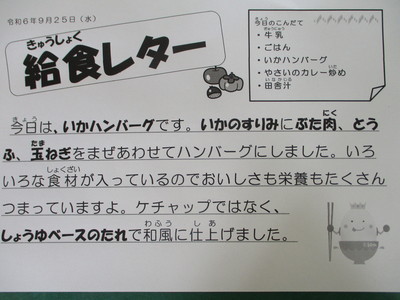 令和6年9月25日（水）
きゅうしょく
給食レター
今日のこんだて
・牛乳
・ごはん
・いかハンバーグ
・やさいのカレー炒め
・田舎汁
今日は、いかハンバーグです。いかのすりみにぶた肉、とう
ふ、玉ねぎをまぜあわせてハンバーグにしました。いろ
いろな食材が入っているのでおいしさも栄養もたくさん
つまっていますよ。ケチャップではなく、
しょうゆベースのたれで和風に仕上げました。